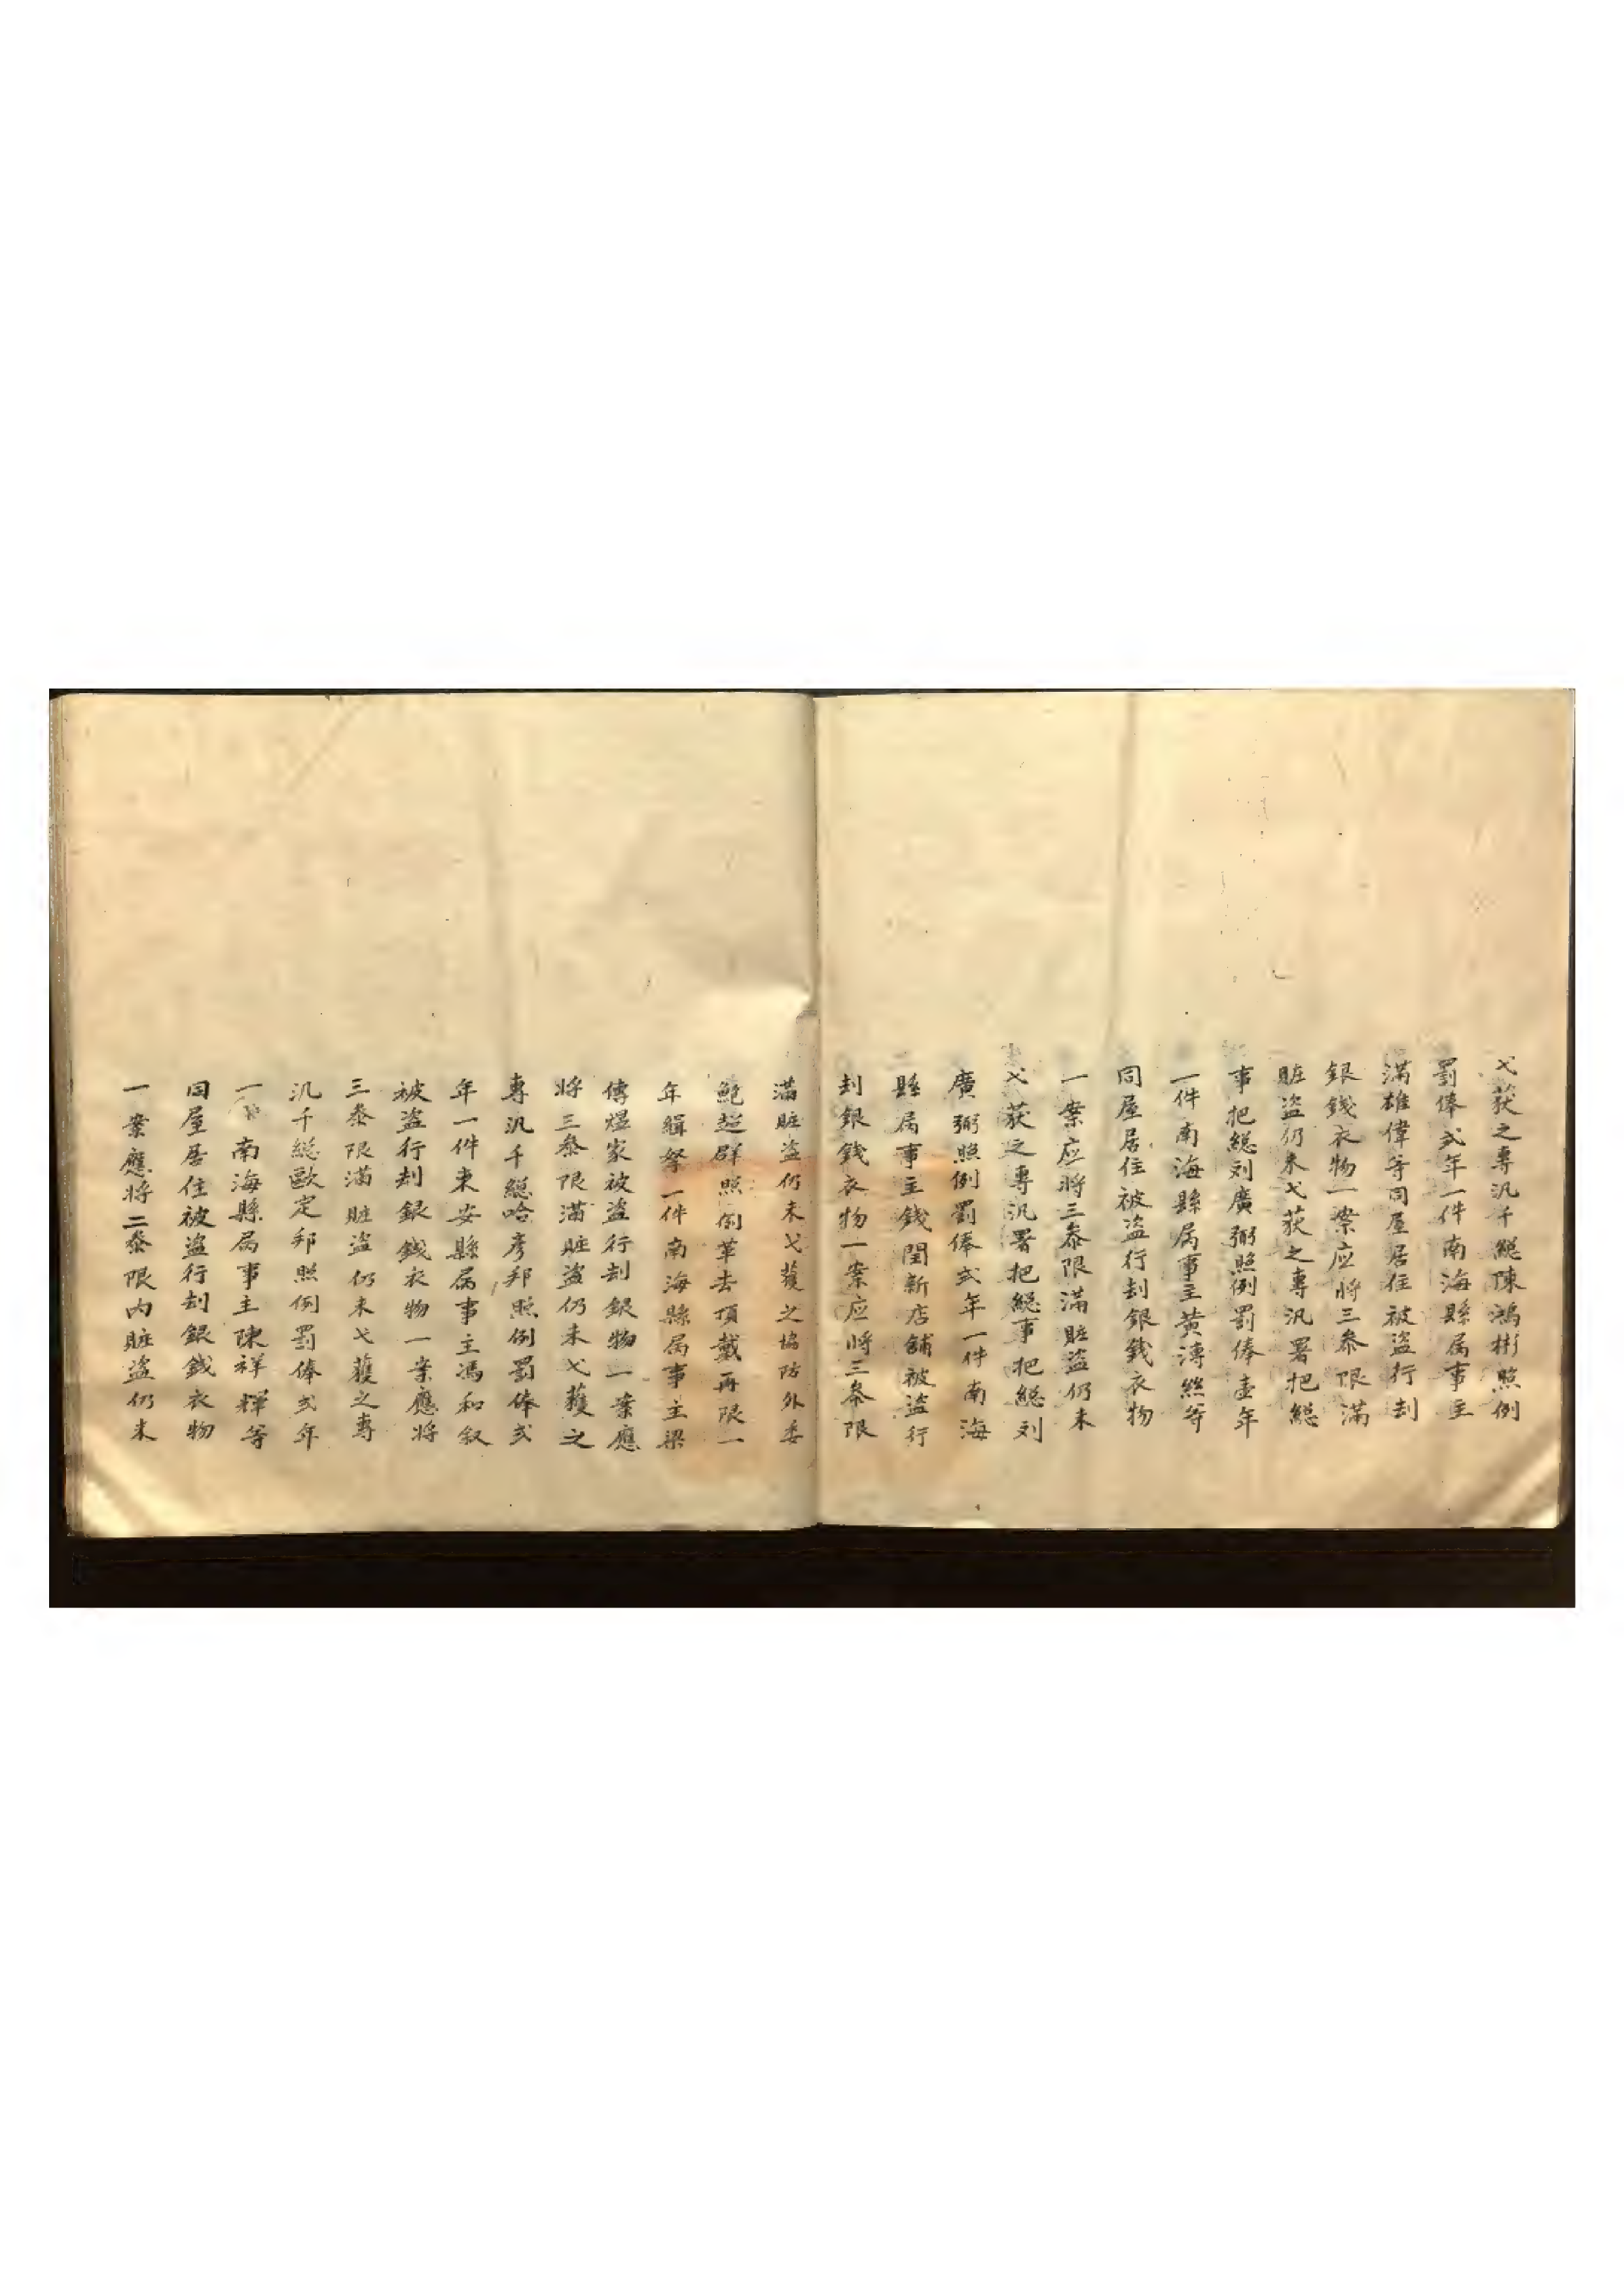 弋获之專汛千總陳鴻彬照例
罰俸弍年一件南海縣属事主
滿雄偉等同屋居住被盗行刦
銀錢衣物一案应將三叅限滿
賍盗仍未弋获之專汛署把総
事把総刘廣弼照例罰俸壹年
一件南海縣属事主黄溥丝等
同屋居住被盗行刦銀錢衣物
一案应將三叅限滿賍盗仍未
弋获之專汛署把総事把総刘
廣弼照例罰俸弍年一件南海
縣属事主錢閏新店舖被盗行
刦銀錢衣物一案应將三叅限
滿賍盗仍未弋獲之協防外委
鮑超群照例革去頂戴再限一
年緝拏一件南海縣属事主梁
傳煜家被盗行刦銀物一案應
將三叅限滿賍盗仍未弋獲之
專汛千総哈彦邦照例罰俸弍
年一件東安縣属事主馮和叙
被盗行刦銀錢衣物一案應將
三叅限滿賍盗仍未弋獲之專
汛千総歐定邦照例罰俸弍年
一件南海縣属事主陳祥輝等
同屋居住被盗行刦銀錢衣物
一案應將二叅限内賍盗仍未